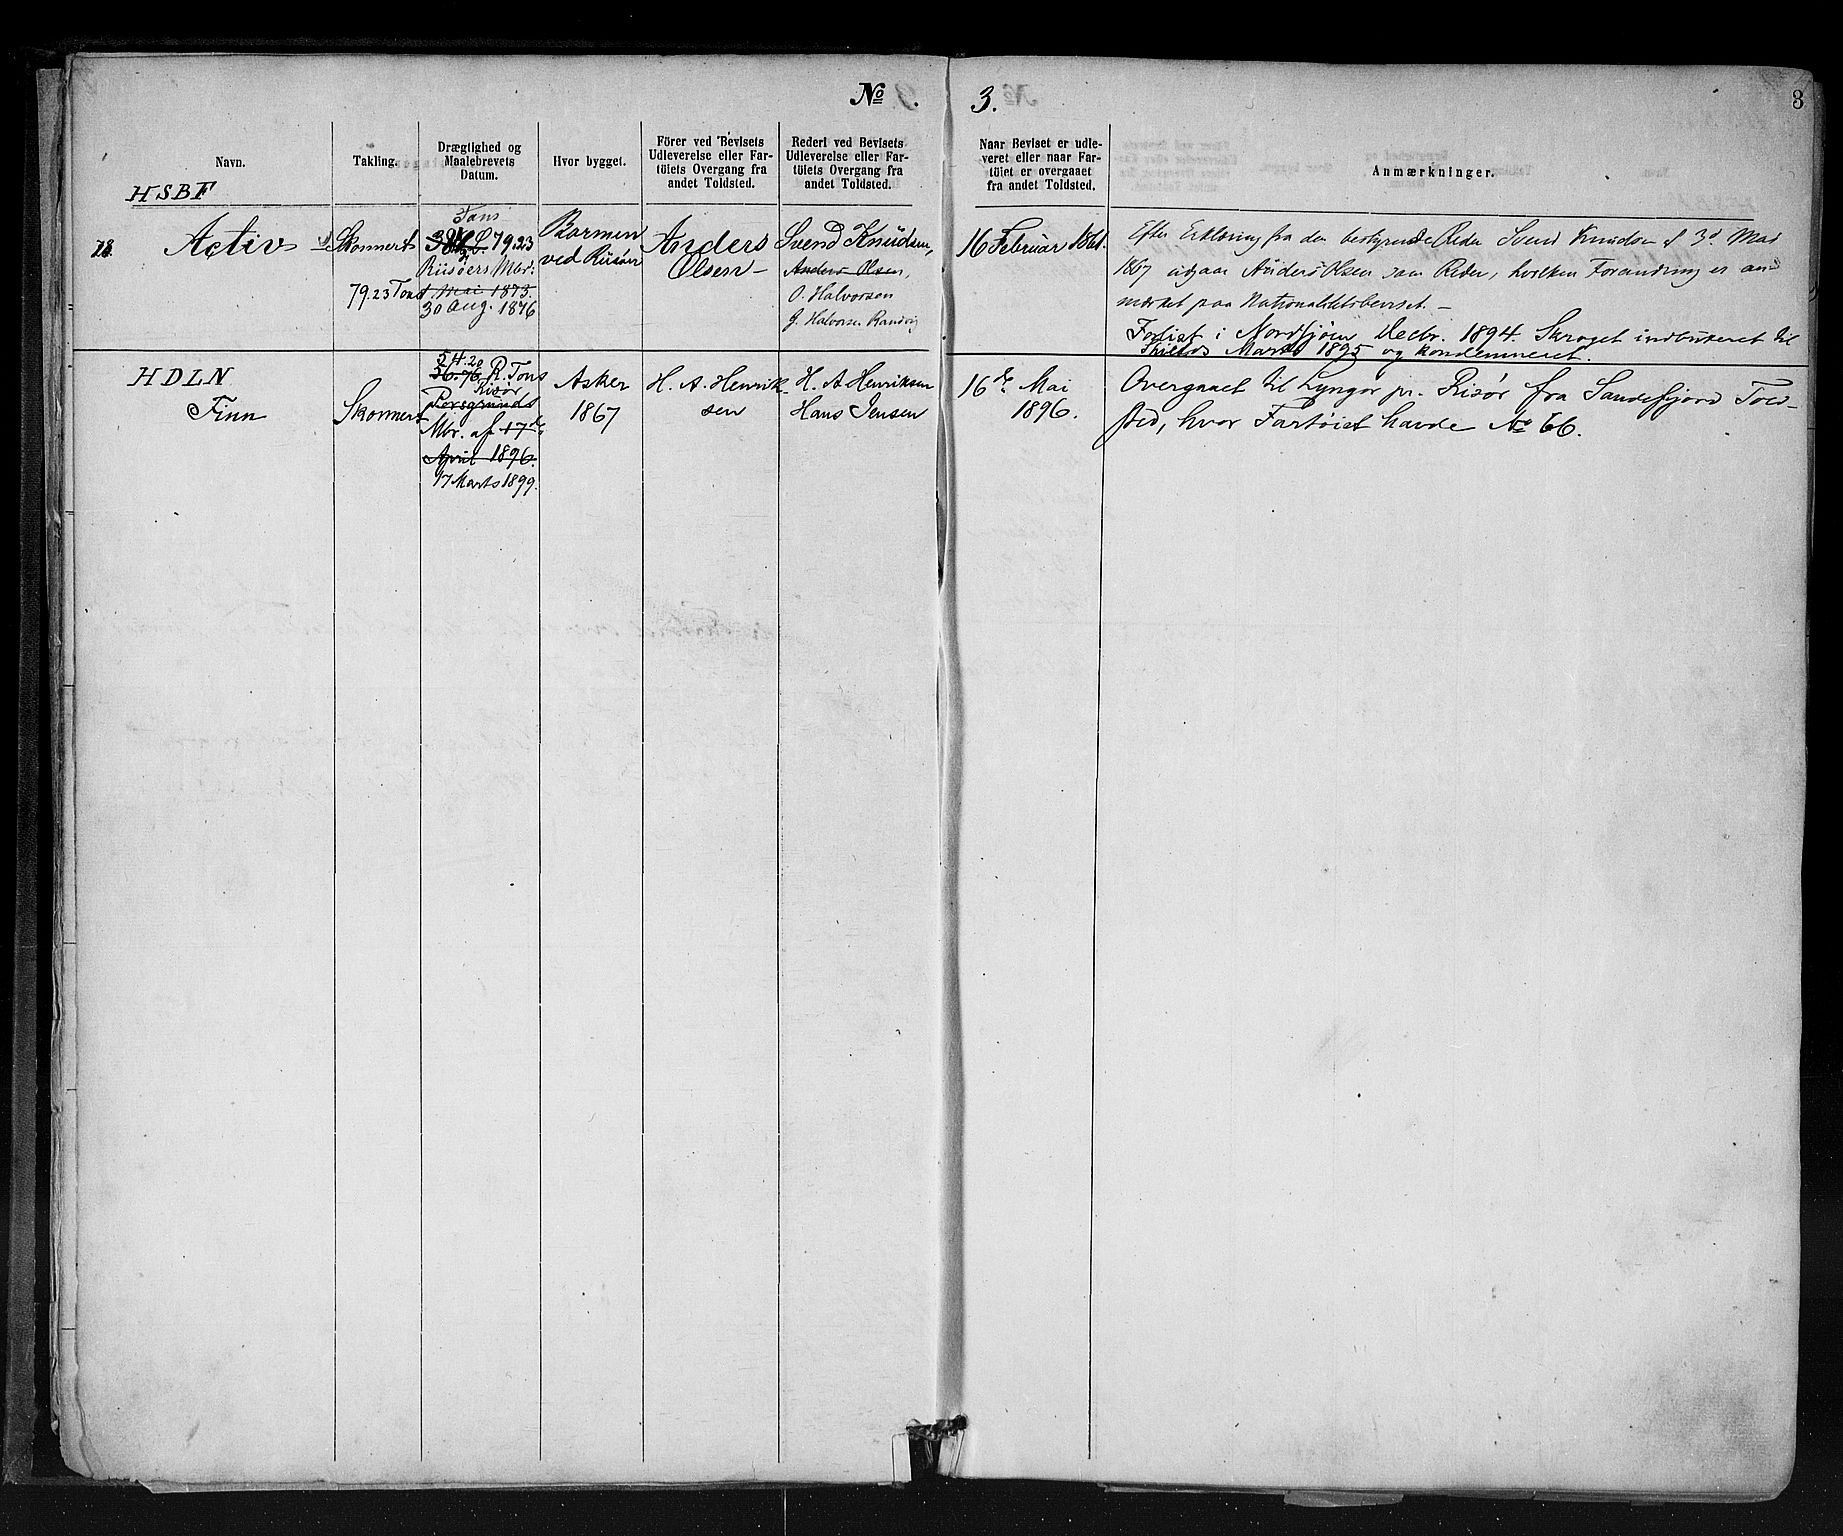 No. 3.
3
Navn.
Takling.
Drægtighed og
Maalebrevets
Datum.
Hvor bygget.
Förer ved Bevisets
Udleverelse eller Far-
töiets Overgang fra
andet Toldsted.
Rederi ved Bevisets
Udleverelse eller Far-
töiets Overgang fra
andet Toldsted.
Naar Beviset er udle-
veret eller naar Far-
töiet er overgaaet
fra andet Toldsted.
Anmærkninger.
HSBF
Activ
Skonnert
79.23 Tons
Tons
79.23
Riisøers Mbr:
1 Mai 1873.
30 Aug. 1876
Barmen
ved Riisøer
Anders
Olsen
Svend Knudsen,
Anders Olsen,
O. Halvorsen
J. Halvorsen Randvig
16 Februar 1861.
Efter Erklæring fra den bestyrende Reder Svend Knudsen af 3d Mai
1867 udgaar Anders Olsen som Reder, hvilken Forandring er an-
mærket paa Nationalitetsbeviset.
Forlist i Nordsjøen Decbr. 1894. Skroget indbuxeret til
Shields Marts 1895 og kondemneret.
HDLN
Finn
Skonnert
54.20
56.76 R. Tons
Risør
Porsgrunds
Mbr. af 17de
April 1896.
17 Marts 1899.
Asker
1867
H. A. Henrik-
sen
H. A. Henriksen
Hans Jensen
16de Mai
1896.
Overgaaet til Lyngør pr. Risør fra Sandefjord Told-
sted, hvor Fartøiet havde No 66.